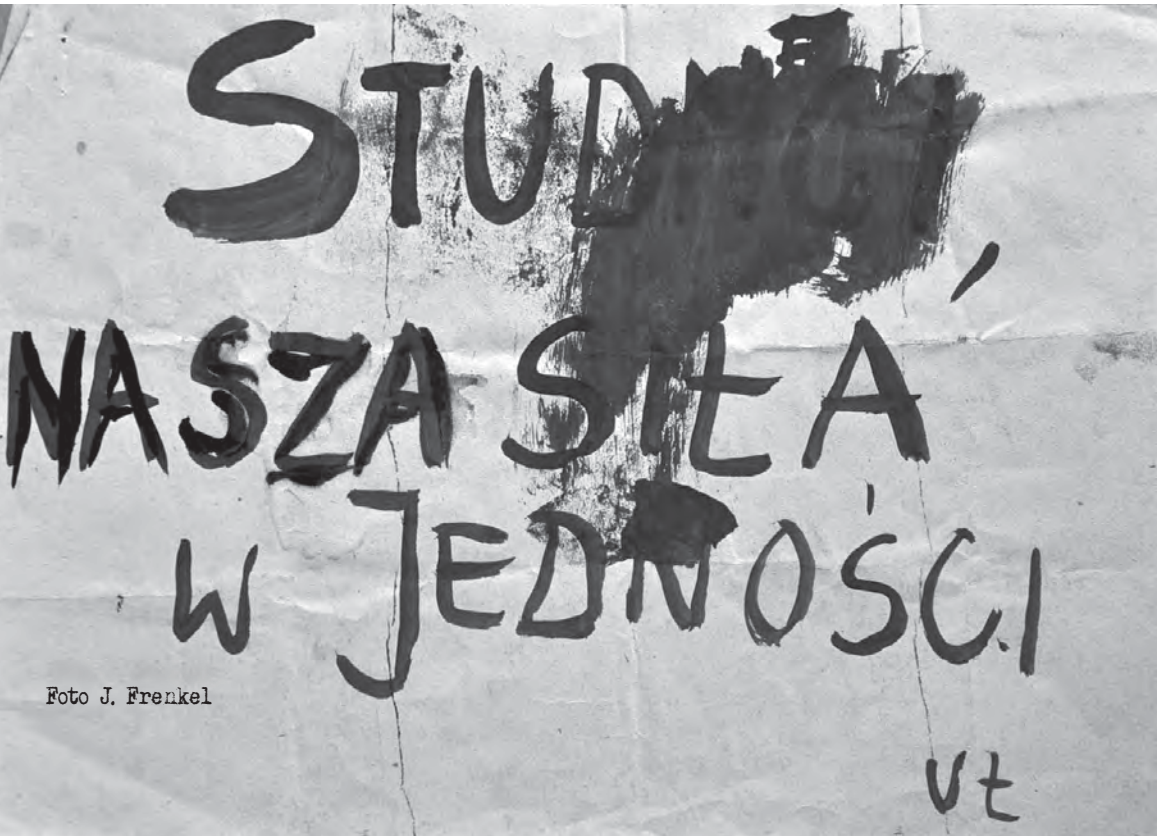 STUDENCI,
NASZA SIŁA
W JEDNOŚCI
Foto J. Frenkel
UŁ